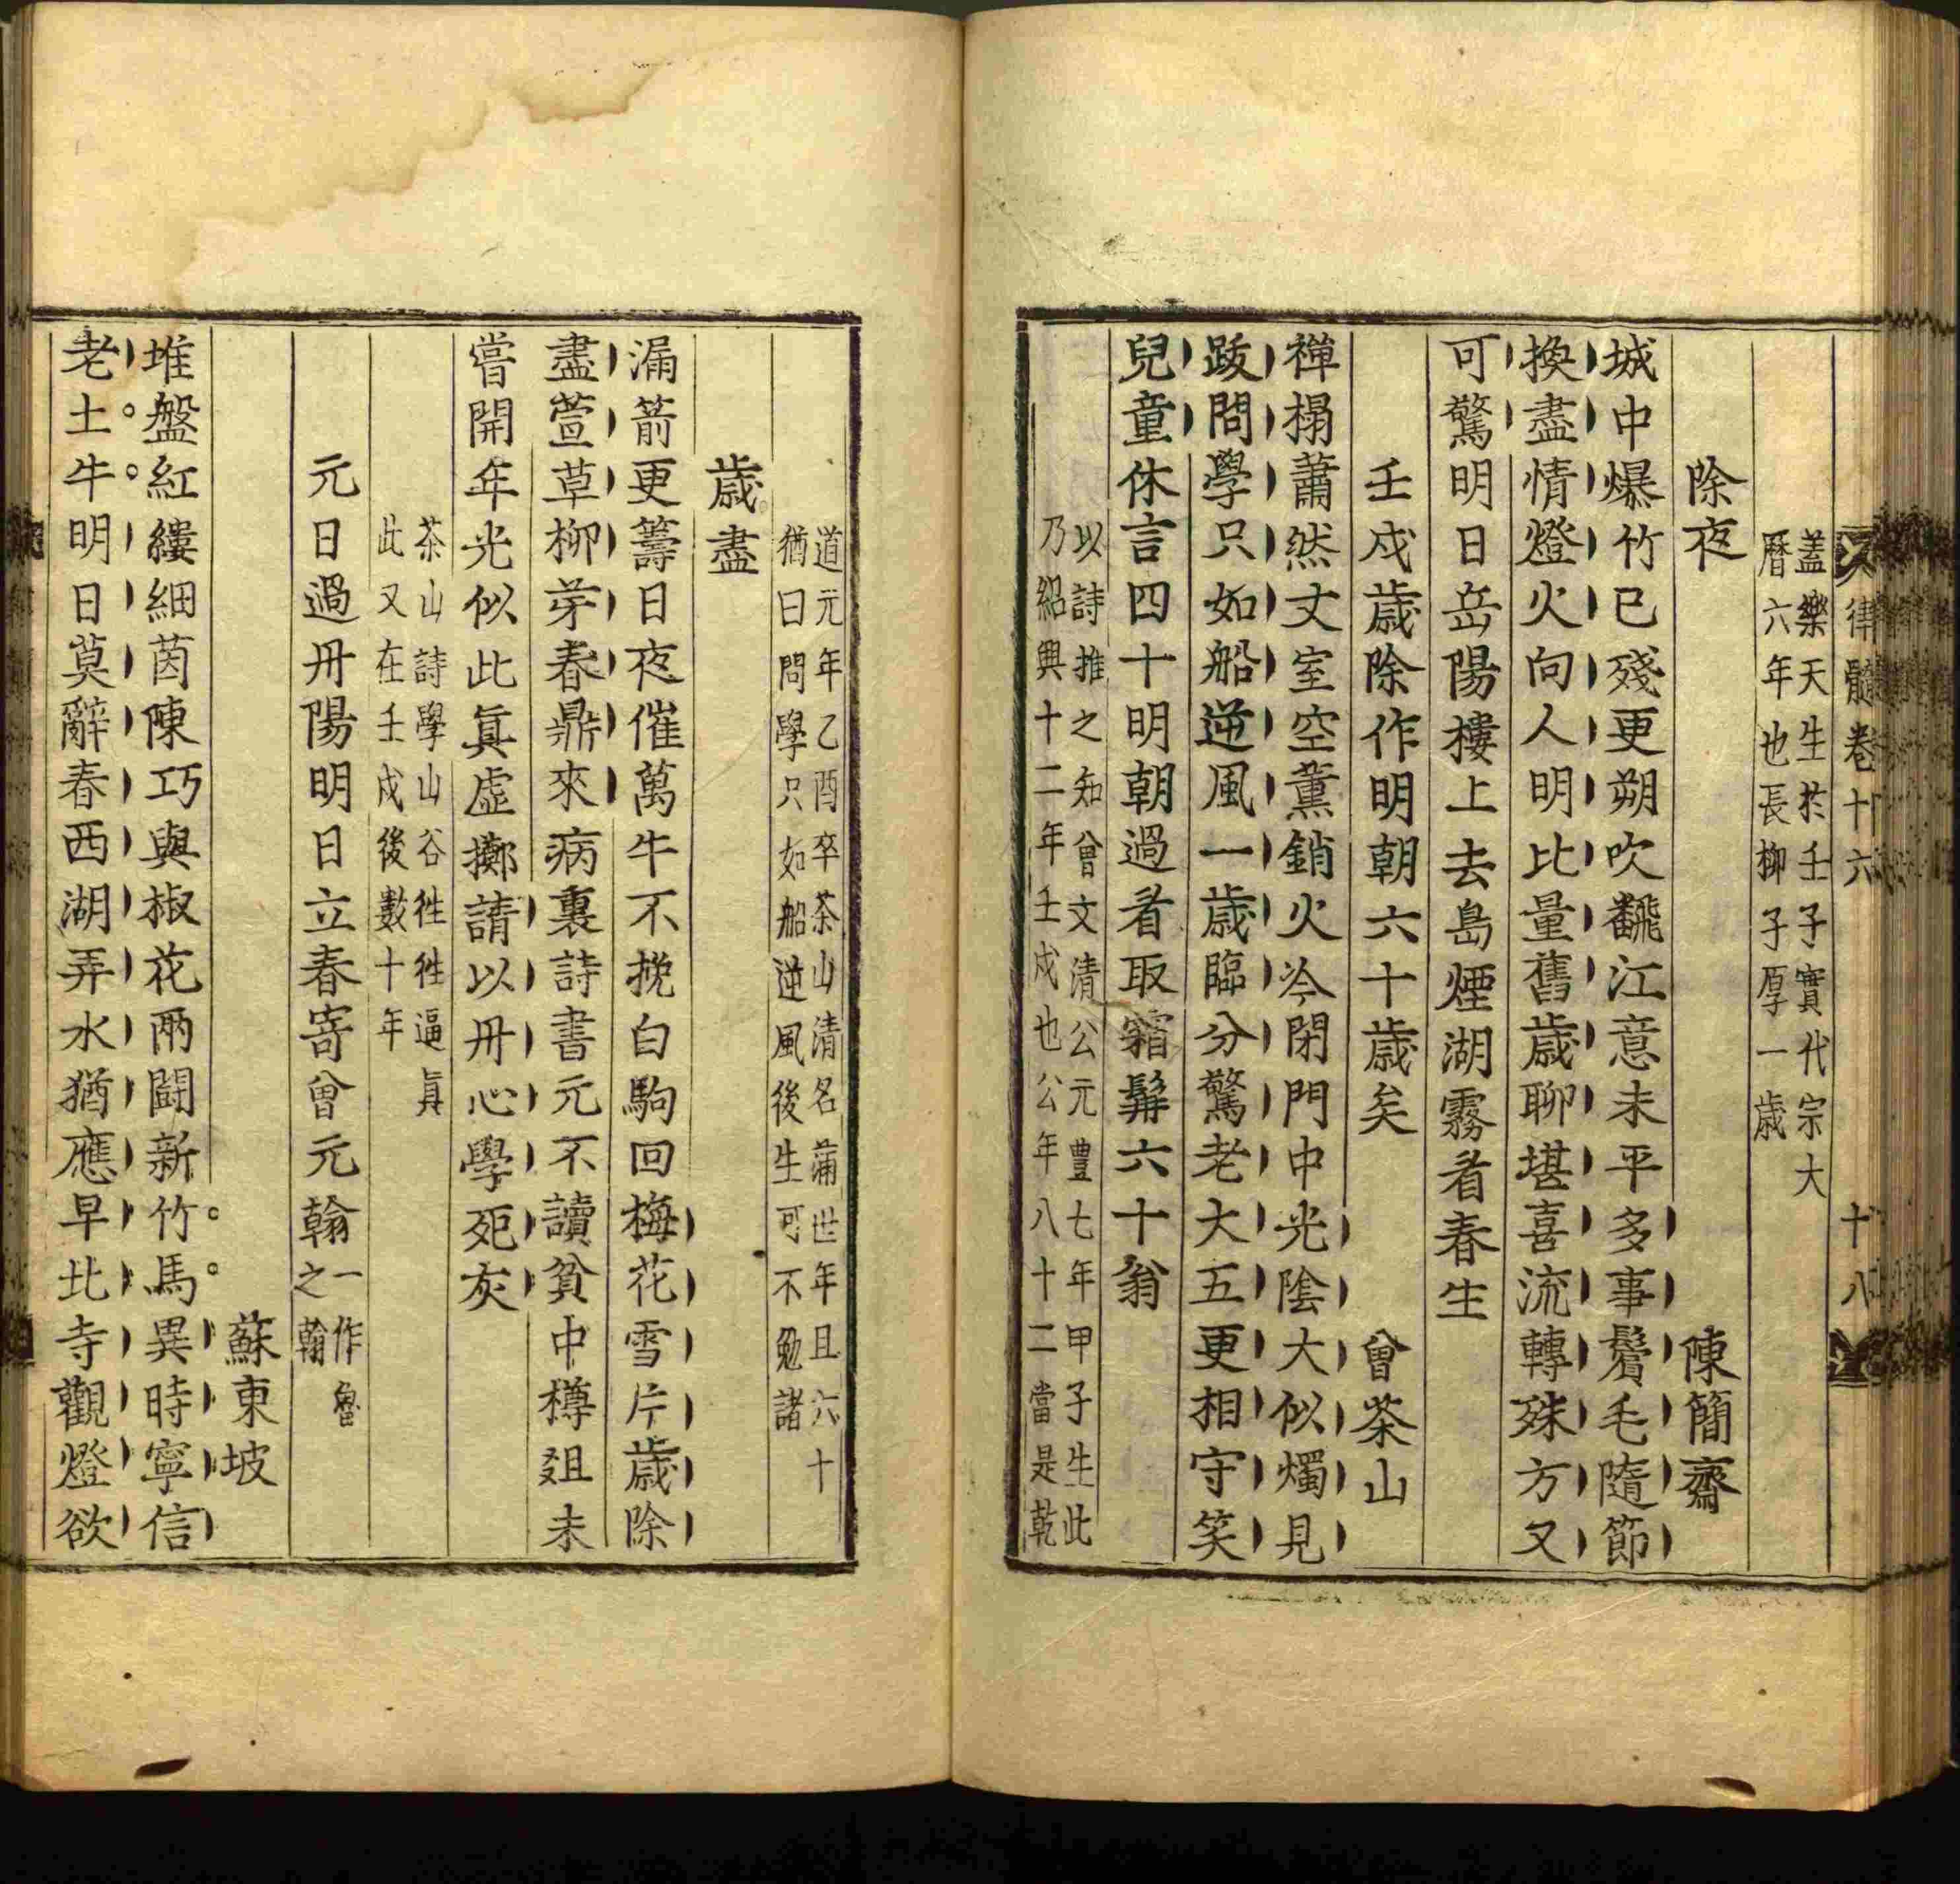 律髓卷十六　十八
蓋樂天生於壬子實代宗大
曆六年也長柳子厚一歲
除夜　陳簡齋
城中爆竹已殘更朔吹飜江意未平多事鬢毛隨節
換盡情燈火向人明比量舊歲聊堪喜流轉殊方又
可驚明日岳陽樓上去島煙湖霧看春生
壬戌歲除作明朝六十歲矣　曾茶山
禪榻蕭然丈室空薰銷火冷閉門中光陰大似燭見
跋問學只如船逆風一歲臨分驚老大五更相守笑
兒童休言四十明朝過看取霜髯六十翁
以詩推之知曾文清公元豊七年甲子生此
乃紹興十二年壬戌也公年八十二當是乾
道元年乙酉卒茶山清名蒲世年且六十
猶曰問學只如船逆風後生可不勉諸
歲盡
漏箭更籌日夜催萬牛不挽白駒回梅花雪片歲除
盡萱草柳芽春鼎來病裏詩書元不讀貧中樽爼未
嘗開年光似此眞虛擲請以丹心學死灰
茶山詩學山谷徃徃逼眞
此又在壬戌後數十年
元日過丹陽明日立春寄曾元翰一作魯
之翰
蘇東坡
堆盤紅縷細茵陳巧與椒花兩鬪新竹馬異時寧信
老土牛明日莫辭春西湖弄水猶應早北寺觀燈欲